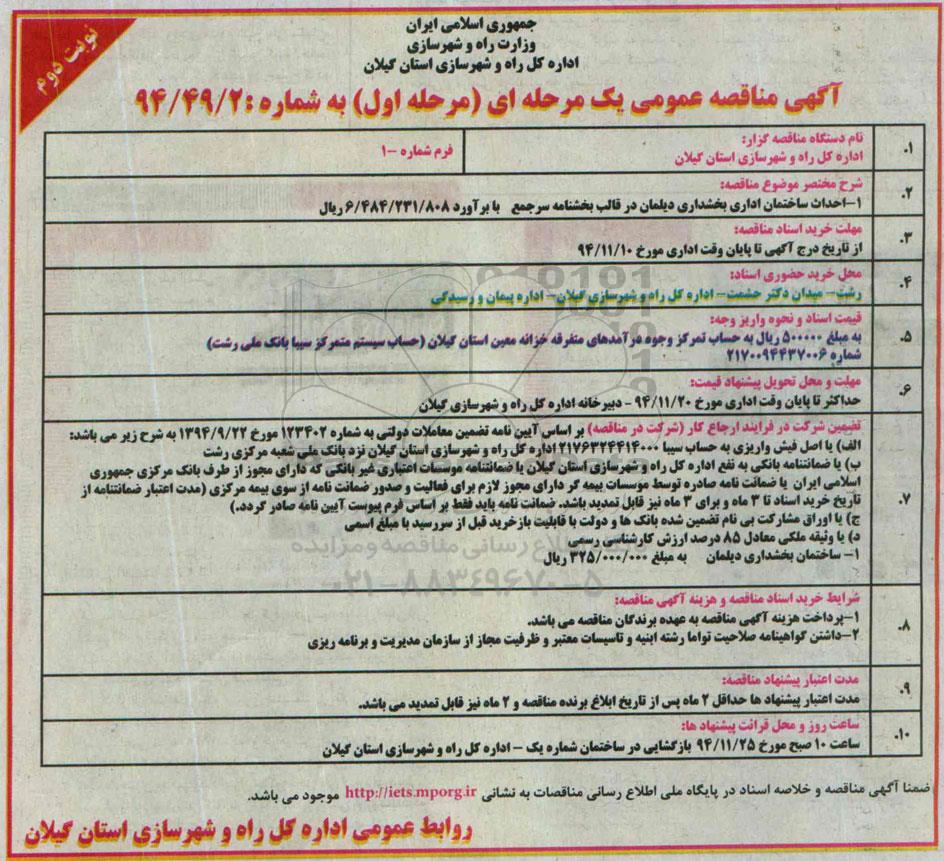 نوبت دوم
جمهوری اسلامی ایران
وزارت راه و شهرسازی
اداره کل راه و شهرسازی استان گیلان
آگهی مناقصه عمومی یک مرحله ای (مرحله اول) به شماره : ۹۴/۴۹/۲
۱.
نام دستگاه مناقصه گزار:
اداره کل راه و شهرسازی استان گیلان
فرم شماره -۱
۲.
شرح مختصر موضوع مناقصه:
۱-احداث ساختمان اداری بخشداری دیلمان در قالب بخشنامه سرجمع با برآورد ۶/۴۸۴/۲۳۱/۸۰۸ ریال
۳.
مهلت خرید اسناد مناقصه:
از تاریخ درج آگهی تا پایان وقت اداری مورخ ۹۴/۱۱/۱۰
۴.
محل خرید حضوری اسناد:
رشت- میدان دکتر حشمت- اداره کل راه و شهرسازی گیلان- اداره پیمان و رسیدگی
۵.
قیمت اسناد و نحوه واریز وجه:
به مبلغ ۵۰۰۰۰۰ ریال به حساب تمرکز وجوه درآمدهای متفرقه خزانه معین استان گیلان (حساب سیستم متمرکز سیبا بانک ملی رشت)
شماره ۲۱۷۰۰۹۴۴۳۷۰۰۶
۶.
مهلت و محل تحویل پیشنهاد قیمت:
حداکثر تا پایان وقت اداری مورخ ۹۴/۱۱/۲۰ - دبیرخانه اداره کل راه و شهرسازی گیلان
۷.
تضمین شرکت در فرایند ارجاع کار (شرکت در مناقصه) بر اساس آیین نامه تضمین معاملات دولتی به شماره ۱۲۳۴۰۲ مورخ ۱۳۹۴/۹/۲۲ به شرح زیر می باشد:
الف) یا اصل فیش واریزی به حساب سیبا ۲۱۷۶۳۲۴۴۱۴۰۰۰ اداره کل راه و شهرسازی استان گیلان نزد بانک ملی شعبه مرکزی رشت
ب) یا ضمانتنامه بانکی به نفع اداره کل راه و شهرسازی استان گیلان یا ضمانتنامه موسسات اعتباری غیر بانکی که دارای مجوز از طرف بانک مرکزی جمهوری
اسلامی ایران یا ضمانت نامه صادره توسط موسسات بیمه گر دارای مجوز لازم برای فعالیت و صدور ضمانت نامه از سوی بیمه مرکزی (مدت اعتبار ضمانتنامه از
تاریخ خرید اسناد تا ۳ ماه و برای ۳ ماه نیز قابل تمدید باشد. ضمانت نامه باید فقط بر اساس فرم پیوست آیین نامه صادر گردد.)
ج) یا اوراق مشارکت بی نام تضمین شده بانک ها و دولت با قابلیت بازخرید قبل از سررسید با مبلغ اسمی
د) یا وثیقه ملکی معادل ۸۵ درصد ارزش کارشناسی رسمی
۱- ساختمان بخشداری دیلمان به مبلغ ۳۲۵/۰۰۰/۰۰۰ ریال
اطلاع رسانی مناقصه و مزایده
۰۲۱-۸۸۳۴۹۶۷۰-۵
۸.
شرایط خرید اسناد مناقصه و هزینه آگهی مناقصه:
۱-پرداخت هزینه آگهی مناقصه به عهده برندگان مناقصه می باشد.
۲-داشتن گواهینامه صلاحیت تواما رشته ابنیه و تاسیسات معتبر و ظرفیت مجاز از سازمان مدیریت و برنامه ریزی
۹.
مدت اعتبار پیشنهاد مناقصه:
مدت اعتبار پیشنهاد ها حداقل ۲ ماه پس از تاریخ ابلاغ برنده مناقصه و ۲ ماه نیز قابل تمدید می باشد.
۱۰.
ساعت روز و محل قرائت پیشنهاد ها:
ساعت ۱۰ صبح مورخ ۹۴/۱۱/۲۵ بازگشایی در ساختمان شماره یک - اداره کل راه و شهرسازی استان گیلان
ضمنا آگهی مناقصه و خلاصه اسناد در پایگاه ملی اطلاع رسانی مناقصات به نشانی http://iets.mporg.ir موجود می باشد.
روابط عمومی اداره کل راه و شهرسازی استان گیلان